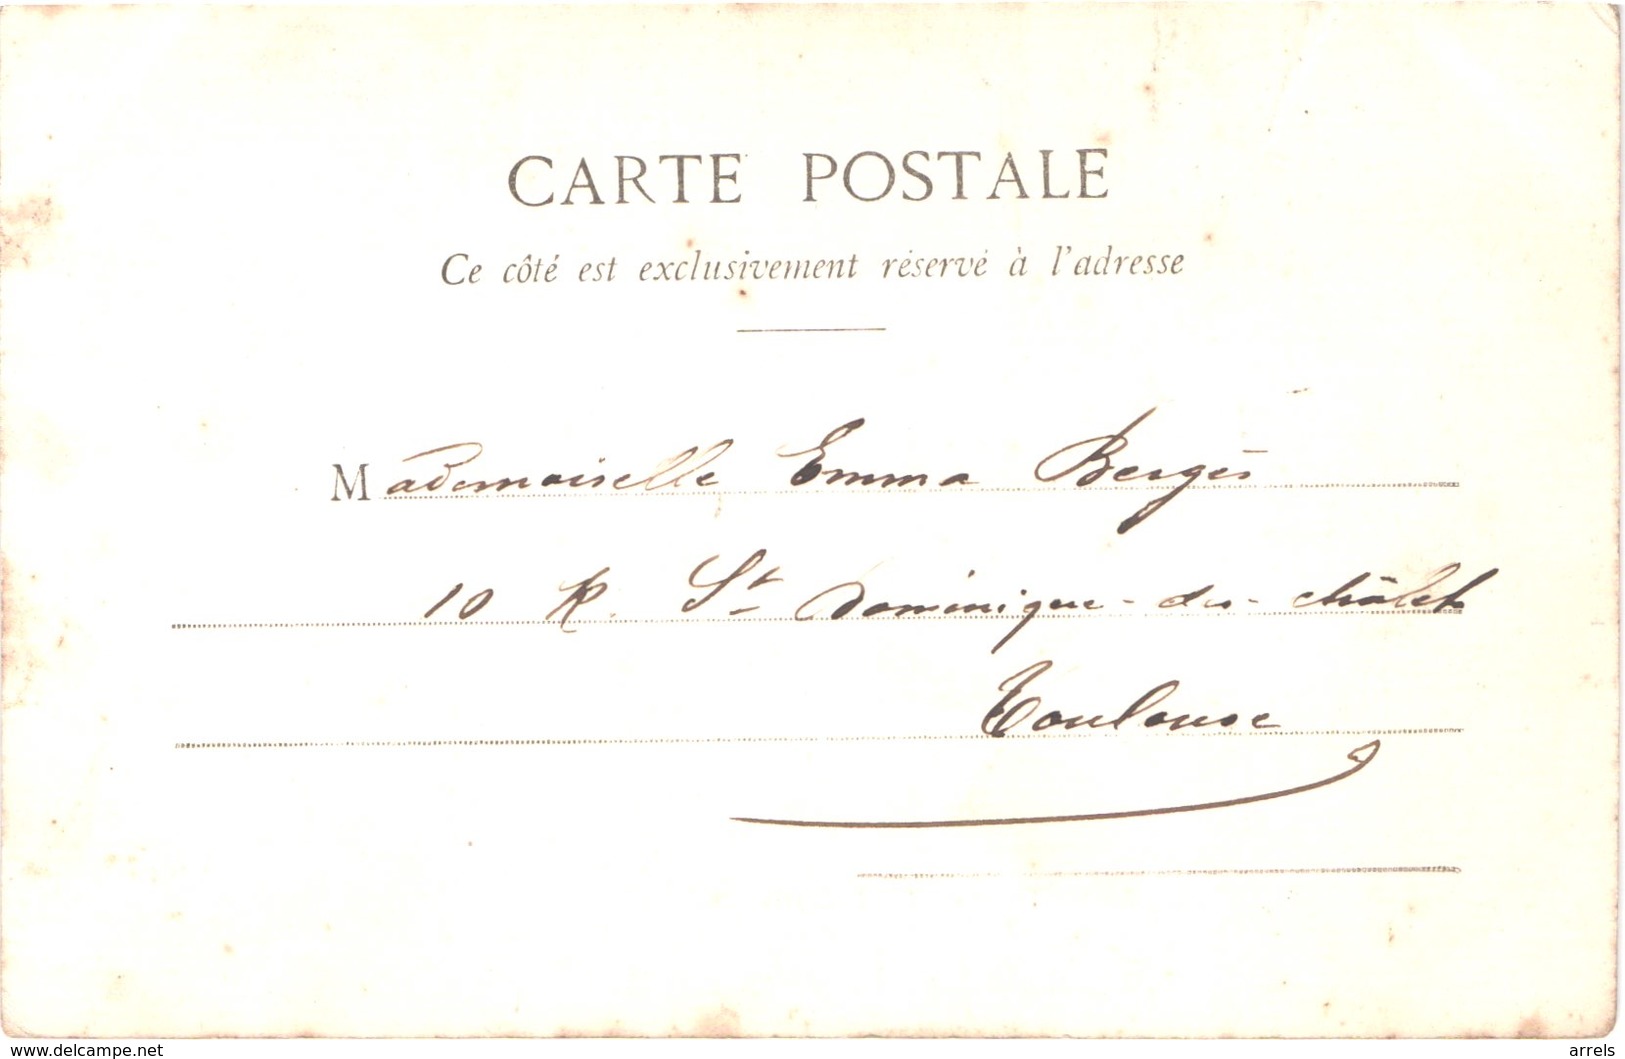 CARTE POSTALE
Ce côté est exclusivement réservé à l'adresse
Mademoiselle Emma Bergès
10 R. St Dominique - du - châlet
Toulouse
www.delcampe.net
arrels